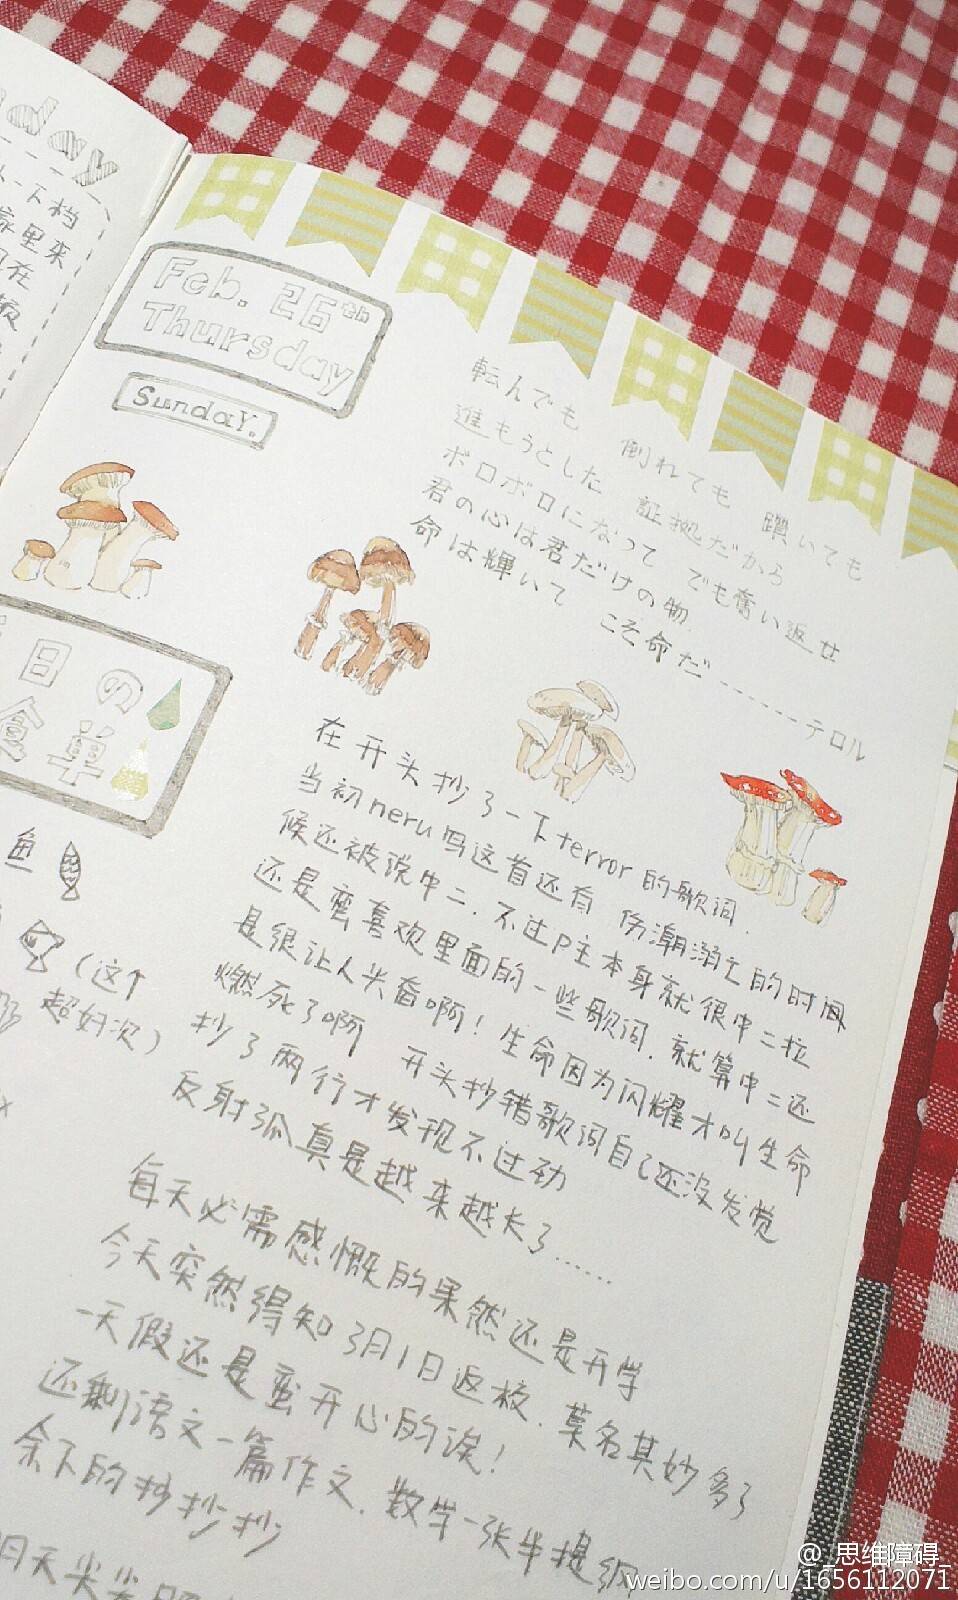 day
一下档
家里来
在
Feb. 26th
Thursday
Sunday.
転んでも 倒れても 躓いても
進もうとした 証拠だから
ボロボロになって でも奮い返せ
君の心は君だけの物
命は輝いて こそ命だ-------テロル
日の
食単
鱼
(这个
超好次)
在开头抄了一下terror的歌词.
当初neru吗这首还有 伤潮溺亡的时间
候还被说中二.不过P主本身就很中二拉
还是蛮喜欢里面的一些歌词.就算中二还
是很让人兴奋啊!生命因为闪耀才叫生命
燃死了啊 开头抄错歌词自己还没发觉
抄了两行才发现不过劲
反射弧真是越来越长了......
每天必需感慨的果然还是开学
今天突然得知3月1日返校.莫名其妙多了
一天假还是蛮开心的诶!
还剩语文一篇作文.数学一张半提纲
余下的抄抄抄
明天
@_思维障碍_
weibo.com/u/1656112071